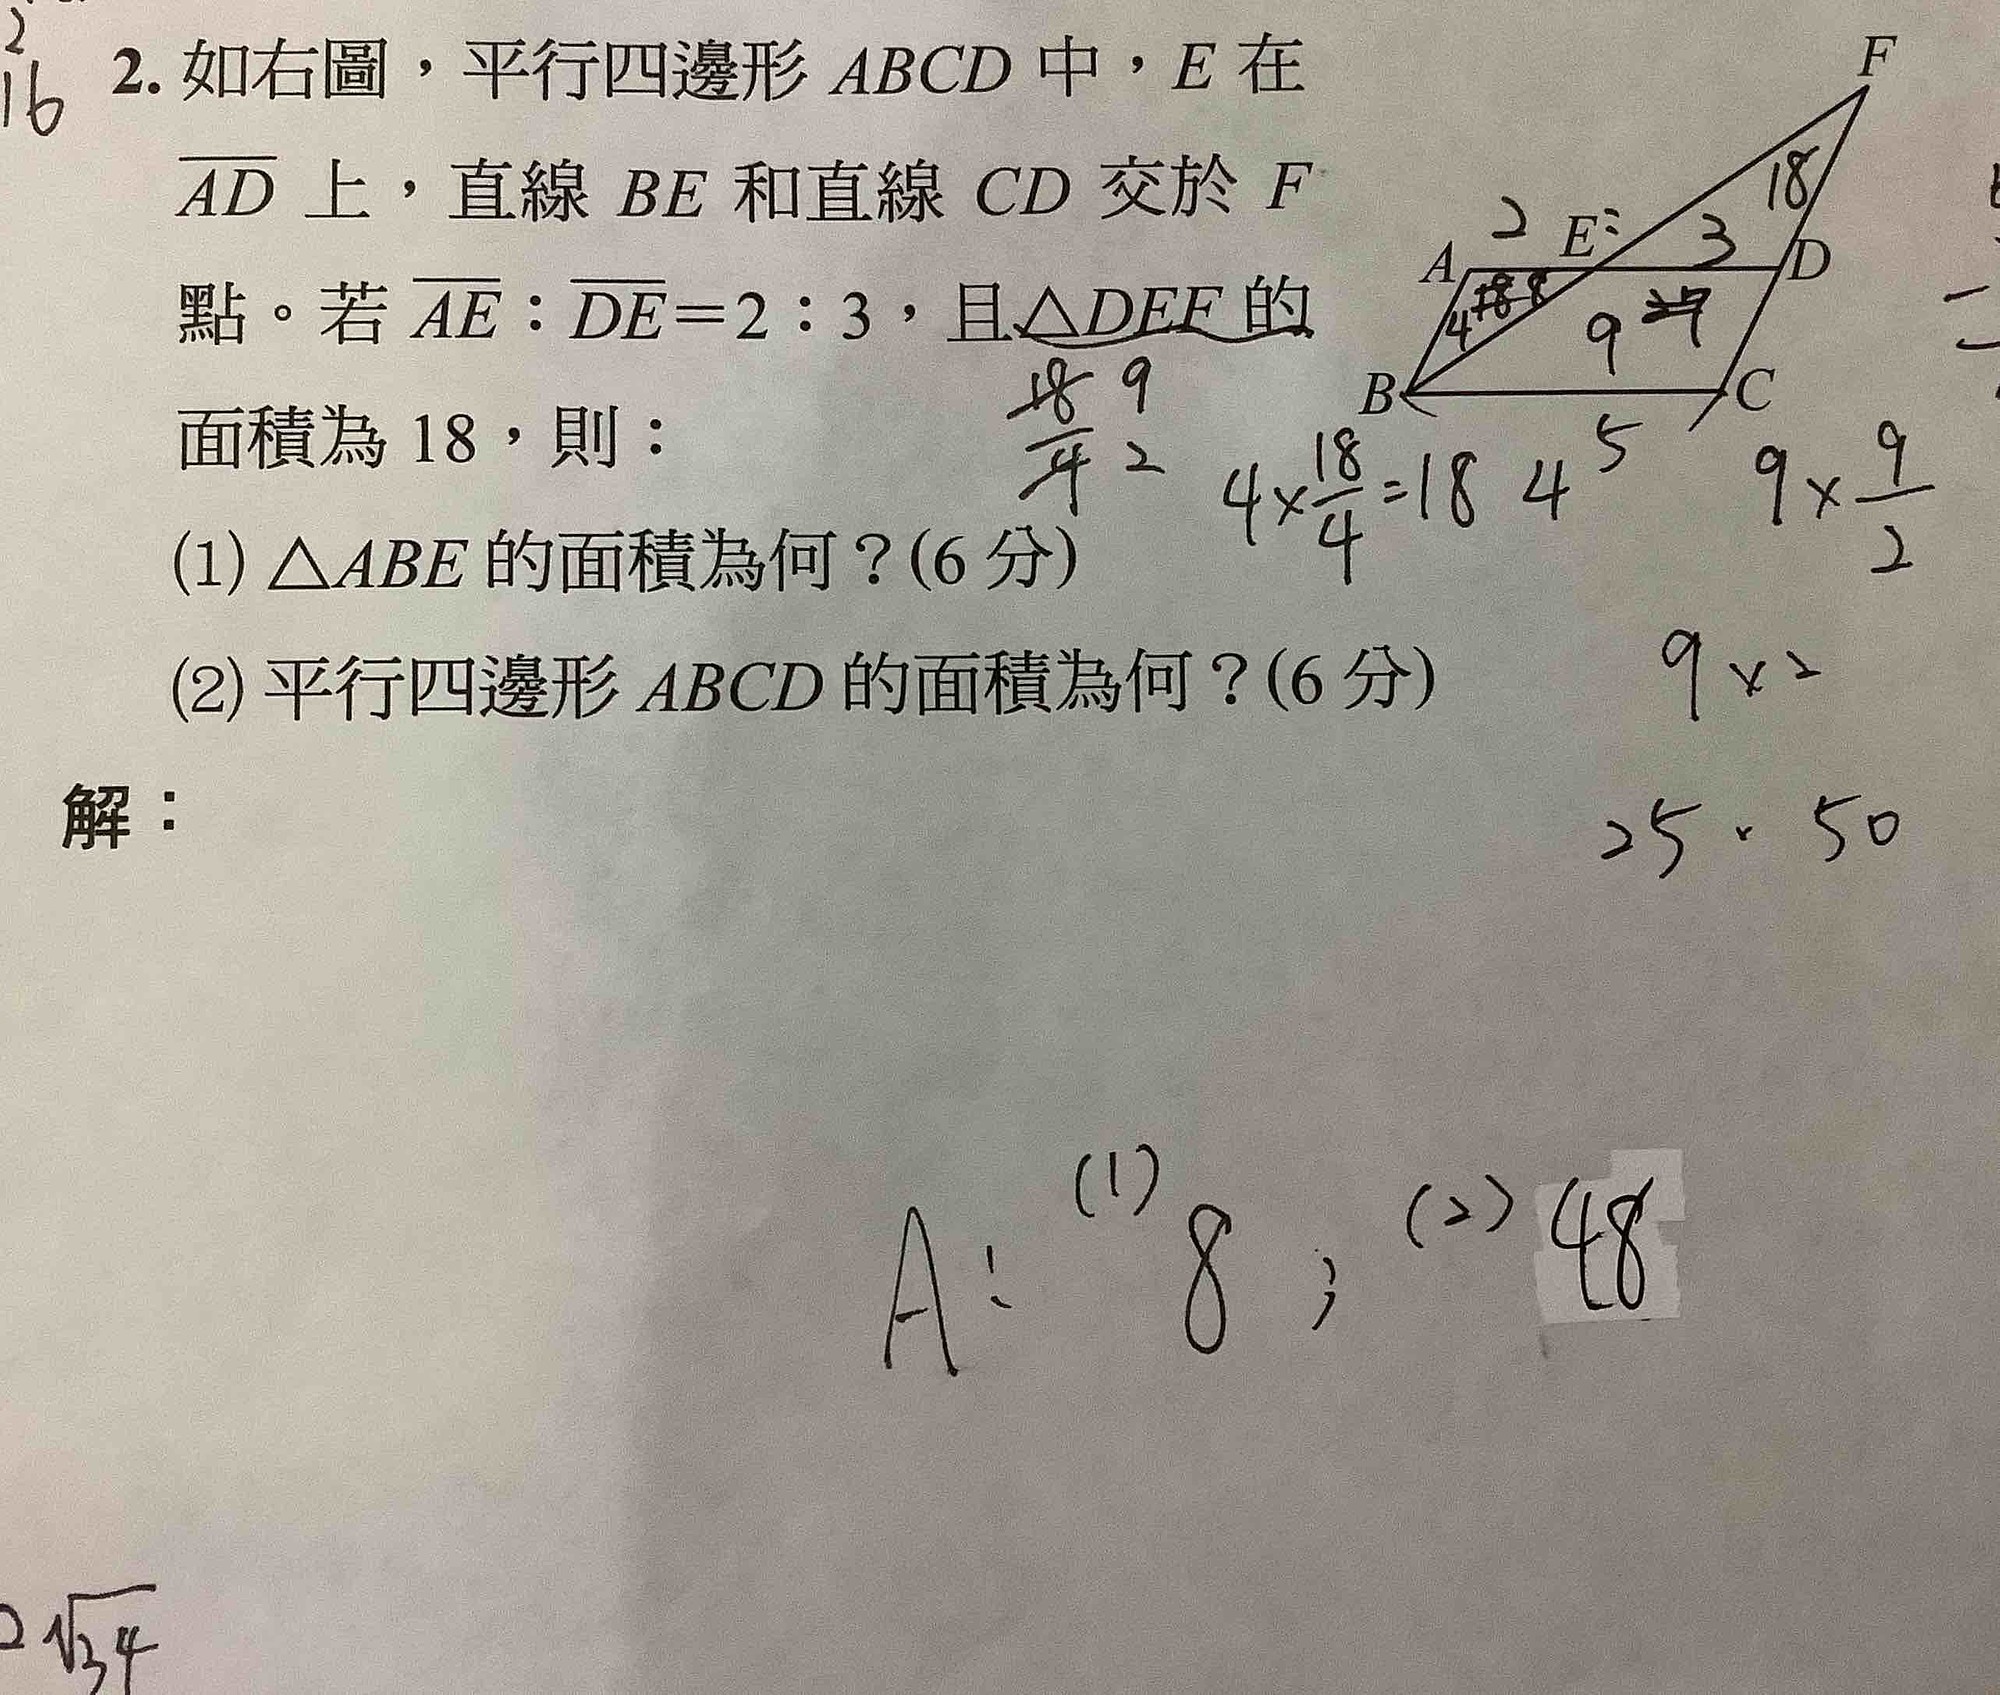 2
16
2. 如右圖，平行四邊形 ABCD 中，E 在
AD 上，直線 BE 和直線 CD 交於 F
點。若 AE：DE＝2：3，且△DEF 的
面積為 18，則：
(1) △ABE 的面積為何？(6 分)
(2) 平行四邊形 ABCD 的面積為何？(6 分)
解：
F
18
2 E: 3
A D
4 8
9
B C
5
18/4 9/2
4×18/4=18 4
9×9/2
9×2
25 · 50
A: (1) 8 ; (2) 48
2√34